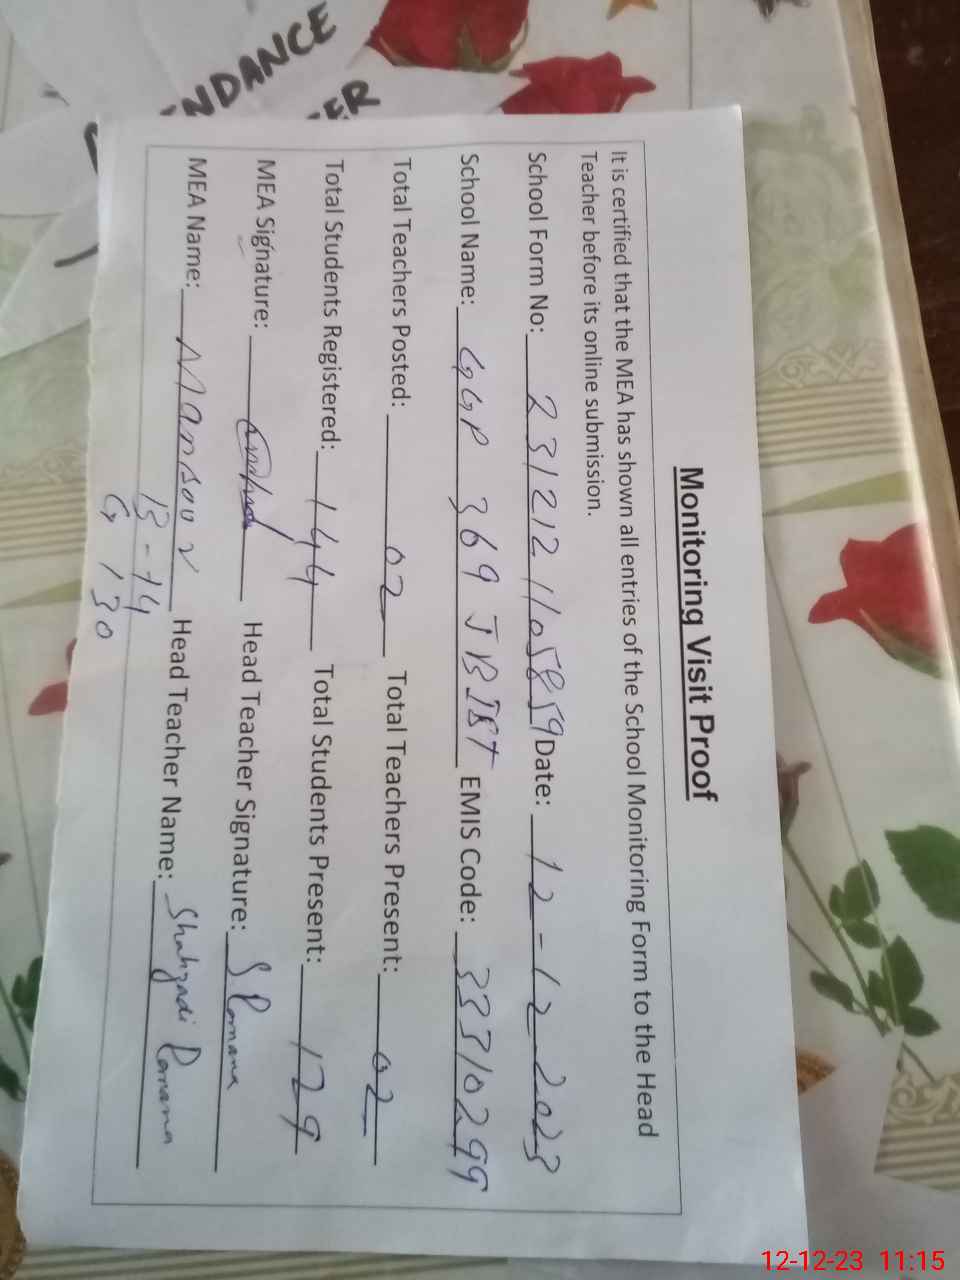 NDANCE
ER
Monitoring Visit Proof
It is certified that the MEA has shown all entries of the School Monitoring Form to the Head
Teacher before its online submission.
School Form No: 2312121105859 Date: 12-12-2023
School Name: GGP 369 JB EMIS Code: 33310299
Total Teachers Posted: 02 Total Teachers Present: 02
Total Students Registered: 144 Total Students Present: 129
MEA Signature: Head Teacher Signature: S Romana
MEA Name: Mansoor Head Teacher Name: Shahzadi Romana
B-14
G 130
12-12-23 11:15